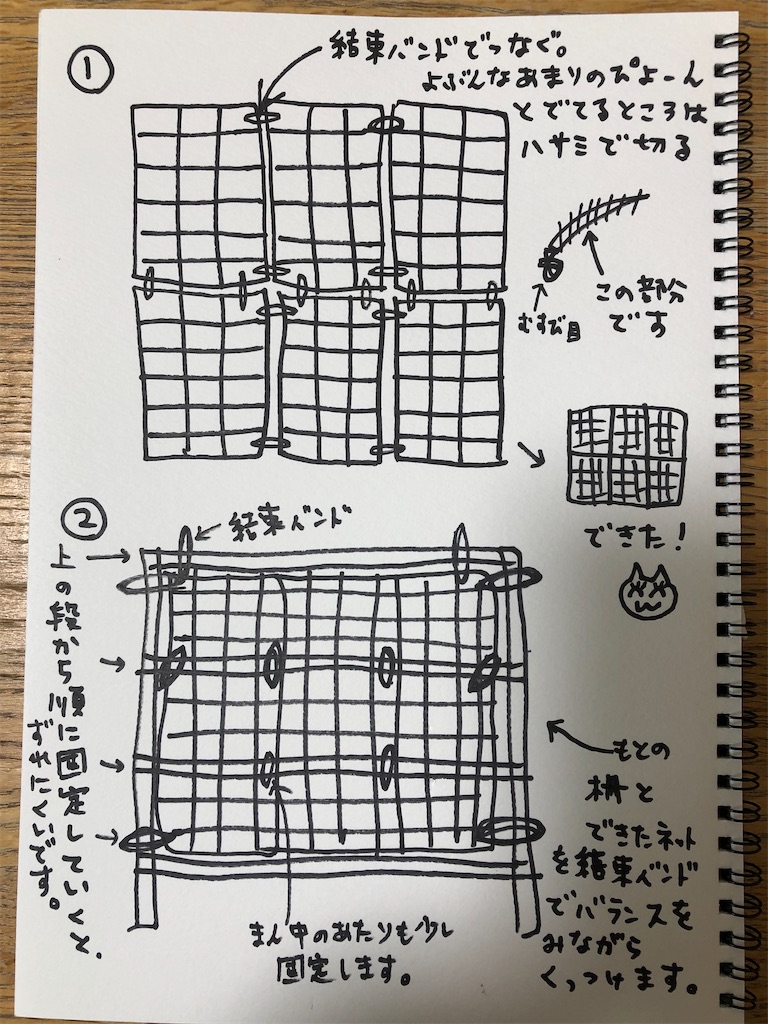 ①
結束バンドでつなぐ。
よぶんなあまりのぴよーん
とでてるところは
ハサミで切る
むすび目
この部分
です
できた!
②
結束バンド
上の段から順に固定していくと、
ずれにくいです。
もとの
柵と
できたネット
を結束バンド
でバランスを
みながら
くっつけます。
まん中のあたりも少し
固定します。